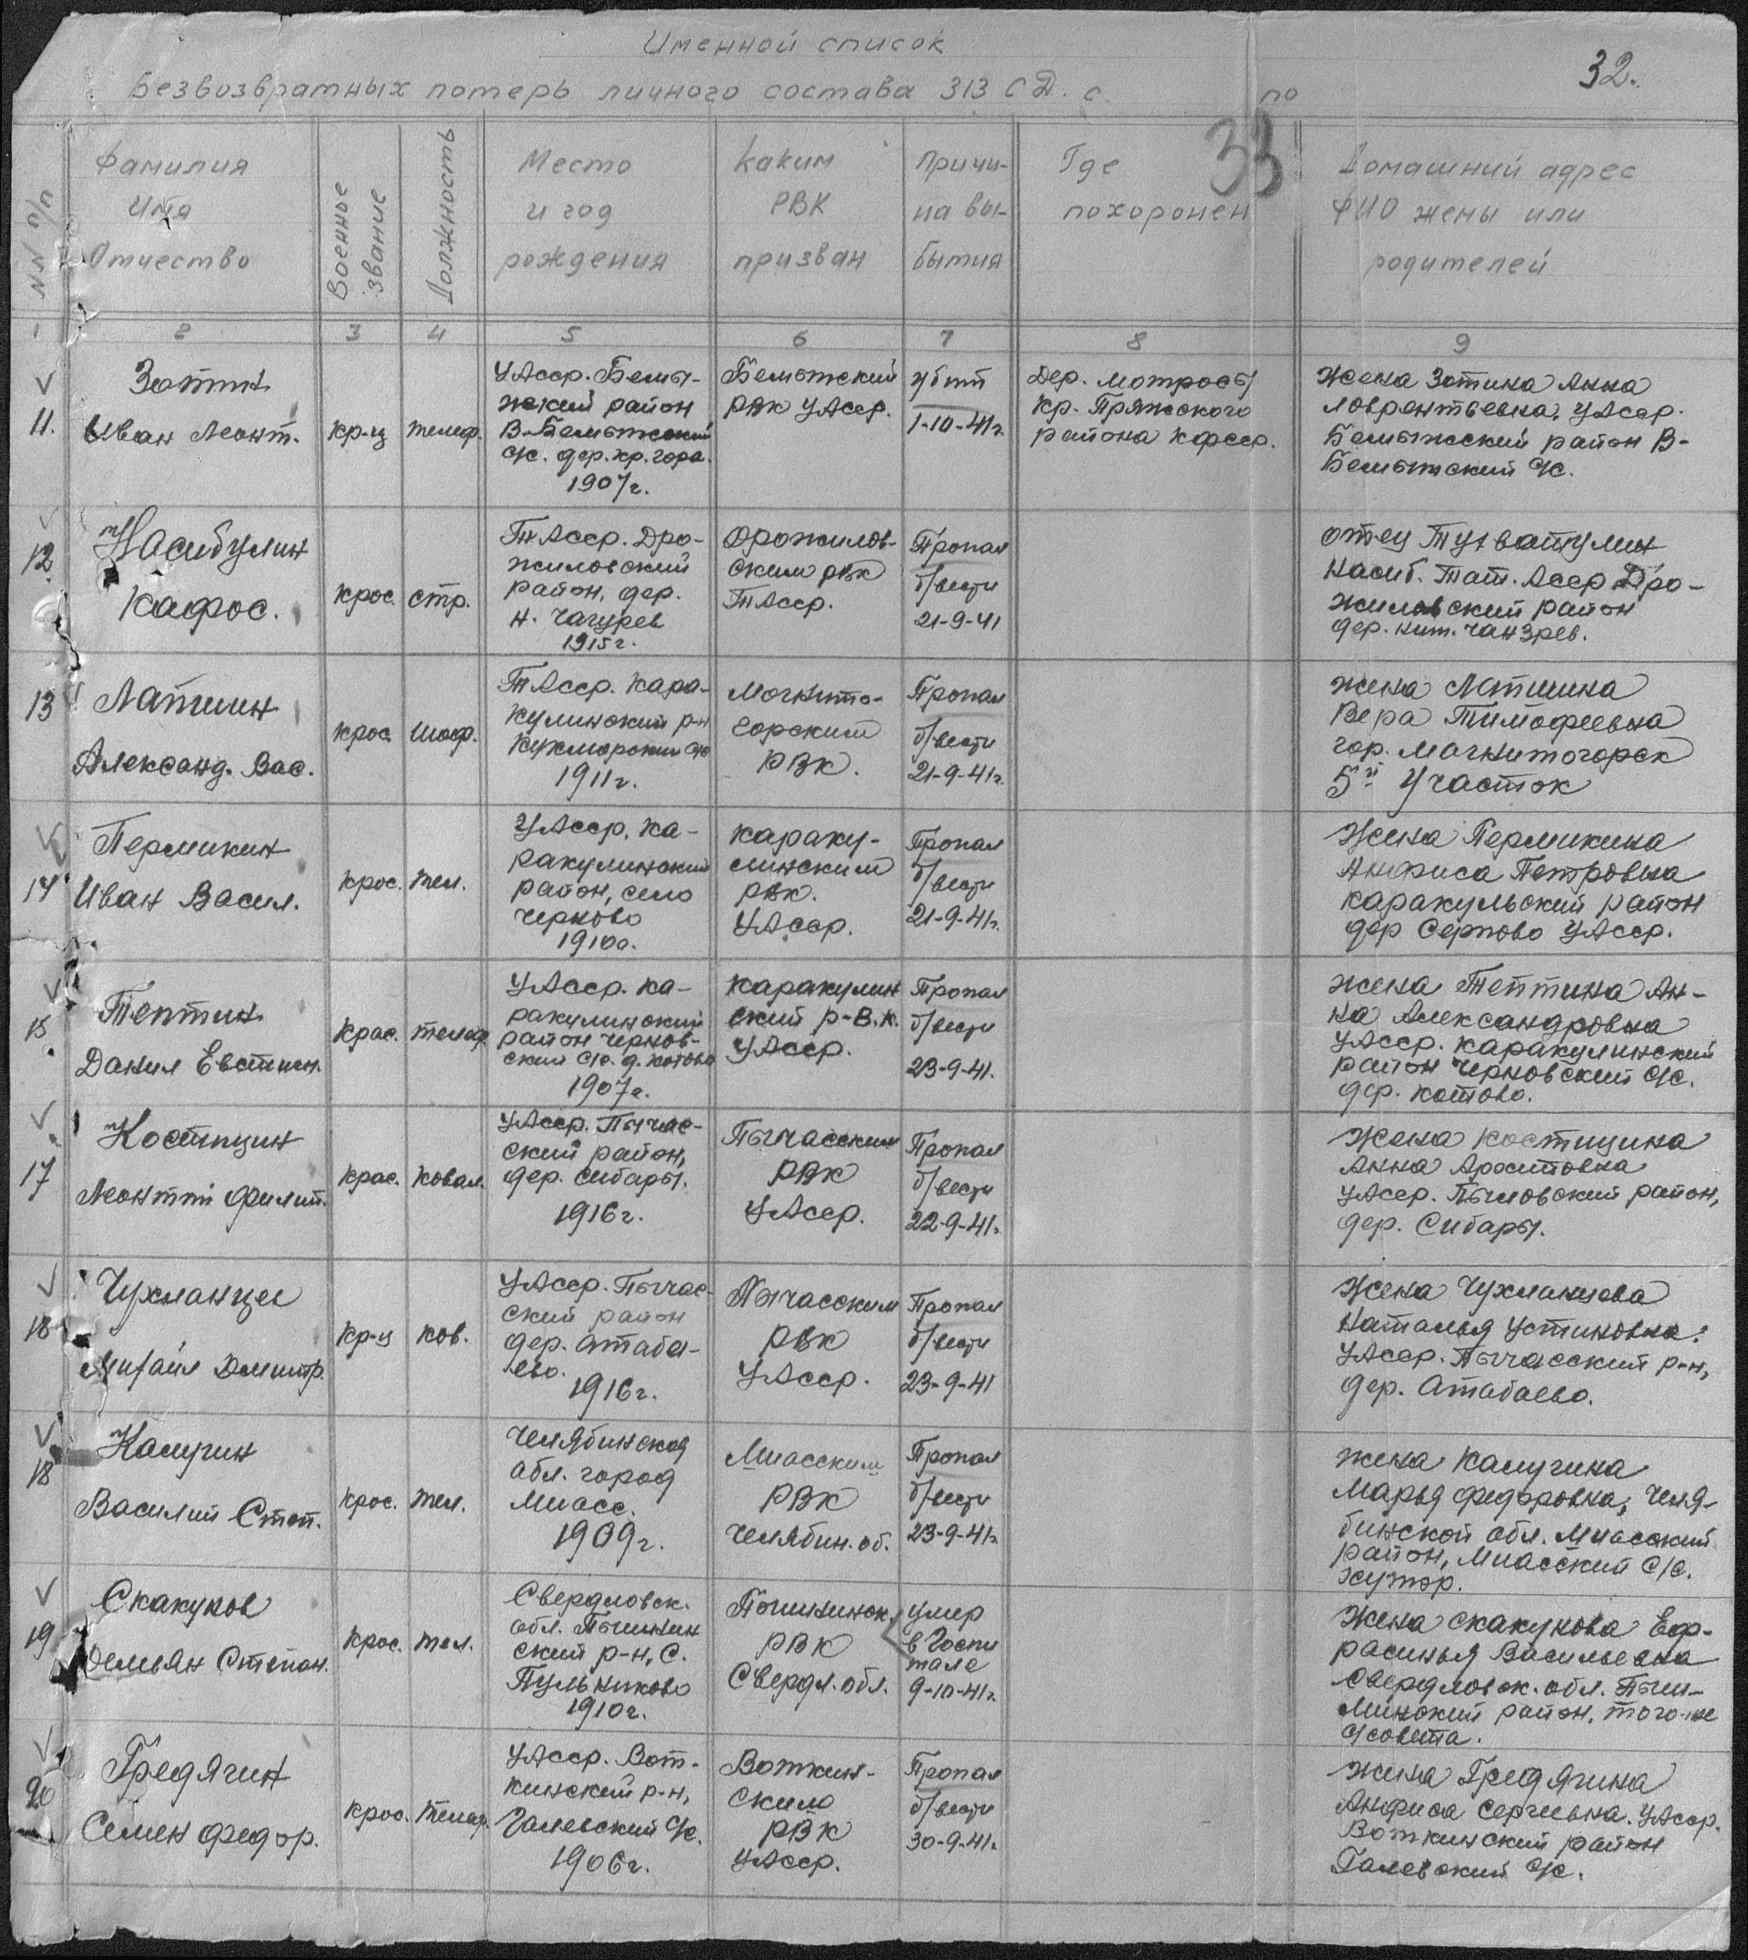 Именной список
Безвозвратных потерь личного состава 313 СД. с. по
32.
33
NN п/п
Фамилия
Имя
Отчество
Военное
звание
Должность
Место
и год
рождения
Каким
РВК
призван
Причи-
на вы-
бытия
Где
похоронен
Домашний адрес
ФИО жены или
родителей
1 2 3 4 5 6 7 8 9
11.
Зотин
Иван Леонт.
кр-ц
телеф.
УАсср. Бемы-
жский район
В-Бемыжский
с/с. дер. кр. гора.
1907г.
Бемыжский
РВК УАсср.
убит
1-10-41г.
Дер. Матросы
Кр. Пряжского
района Кфсср.
Жена Зотина Анна
Лаврентьевна, УАсср.
Бемыжский район В-
Бемыжский с/с.
12.
Насибулин
Кафас.
крас.
стр.
ТАсср. Дро-
жиловский
район, дер.
н. Чагурев
1915г.
Орожилов-
ским РВК
ТАсср.
Пропал
б/вести
21-9-41
отец
Насиб. Тат. Асср Дро-
жиловский район
дер. Чанзрев.
13
Лапшин
Александ. Вас.
крас
шоф.
ТАсср. Кара-
кулинский р-н
Кукморский с/с
1911г.
Магнито-
горским
РВК.
Пропал
б/вести
21-9-41г.
жена Лапшина
Вера Тимофеевна
гор. Магнитогорск
5й Участок
14
Пермикин
Иван Васил.
крас.
тел.
УАсср. Ка-
ракулинский
район, село
Черново
1910г.
Караку-
линским
РВК.
УАсср.
Пропал
б/вести
21-9-41г.
Жена Пермикина
Анфиса Петровна
Каракульский район
дер Серново УАсср.
15.
Тептин
Данил Евстигн.
крас.
телеф
УАсср. Ка-
ракулинский
район Чернов-
ский с/с. д. Котово
1907г.
Каракулин
ский р-в.к.
УАсср.
Пропал
б/вести
23-9-41.
жена Тептина Ан-
на Александровна
УАсср. Каракулинский
район Черновский с/с.
дер. Котово.
17
Костицин
Леонтий Филип.
крас.
ковал.
УАсср. Пычас-
ский район,
дер. Сибары.
1916г.
Пычасским
РВК
УАсср.
Пропал
б/вести
22-9-41г.
Жена Костицина
Анна
УАсср. район,
дер. Сибары.
18
Чухланцев
Михаил Дмитр.
кр-ц
ков.
УАсср. Пычас-
ский район
дер. Атаба-
ево.
1916г.
Пычасским
РВК
УАсср.
Пропал
б/вести
23-9-41
Жена Чухланцева
Наталья Устиновна.
УАсср. Пычасский р-н,
дер. Атабаево.
18
Калугин
Василий Степ.
крас.
тел.
Челябинская
обл. город
Миасс.
1909г.
Миасским
РВК
Челябин. об.
Пропал
б/вести
23-9-41г.
жена Калугина
Марья Федоровна, Челя-
бинской обл. Миасский
район, Миасский с/с.
хутор.
19
Скакунов
Демьян Степан.
крас.
тел.
Свердловск.
обл. Пышмин
ский р-н, с.
Тупыниково
1910г.
Пышминск.
РВК
Свердл. обл.
умер
в Госпи
тале
9-10-41г.
Жена Скакунова Еф-
расинья Васильевна
Свердловск. обл. Пыш-
минский район, того-же
с/совета.
20
Гредягин
Семен Федор.
крас.
телеф.
УАсср. Вот-
кинский р-н,
Галевский с/с.
1906г.
Воткин-
ским
РВК
УАсср.
Пропал
б/вести
30-9-41г.
жена Гредягина
Анфиса Сергеевна. УАсср.
Воткинский район
Галевский с/с.